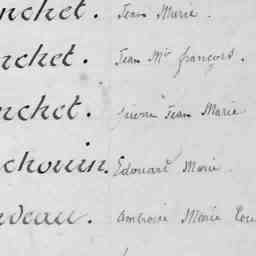 nchet. Jean Marie.
nchet. Jean Mie françois.
nchet. pierre Jean Marie
chouin. Edouard Marie.
deau. Ambroise Marie Lou